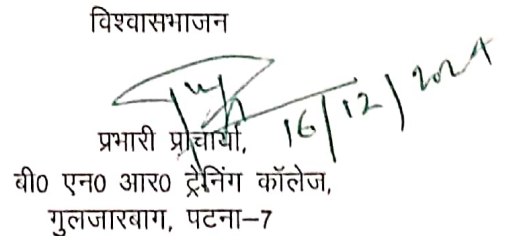 विश्वासभाजन
16/12/2024
प्रभारी प्राचार्या,
बी0 एन0 आर0 ट्रेनिंग कॉलेज,
गुलजारबाग, पटना–7